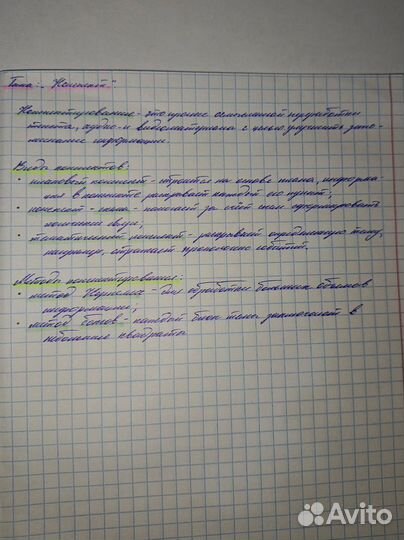 Тема: „Конспект"
Конспектирование - это процесс осмысленной переработки
текста, аудио- и видеоматериала с целью улучшить запо-
минание информации.
Виды конспектов:
• плановый конспект - строится на основе плана, информа-
ция в конспекте раскрывает каждый его пункт;
• конспект - схема - помогает за счёт схем сформировать
логические связи;
• тематический конспект - раскрывает определённую тему,
например, отражает хронологию событий.
Методы конспектирования:
• метод Корнелла - для обработки больших объёмов
информации;
• метод боксов - каждый блок темы заключает в
небольшие квадраты
Avito